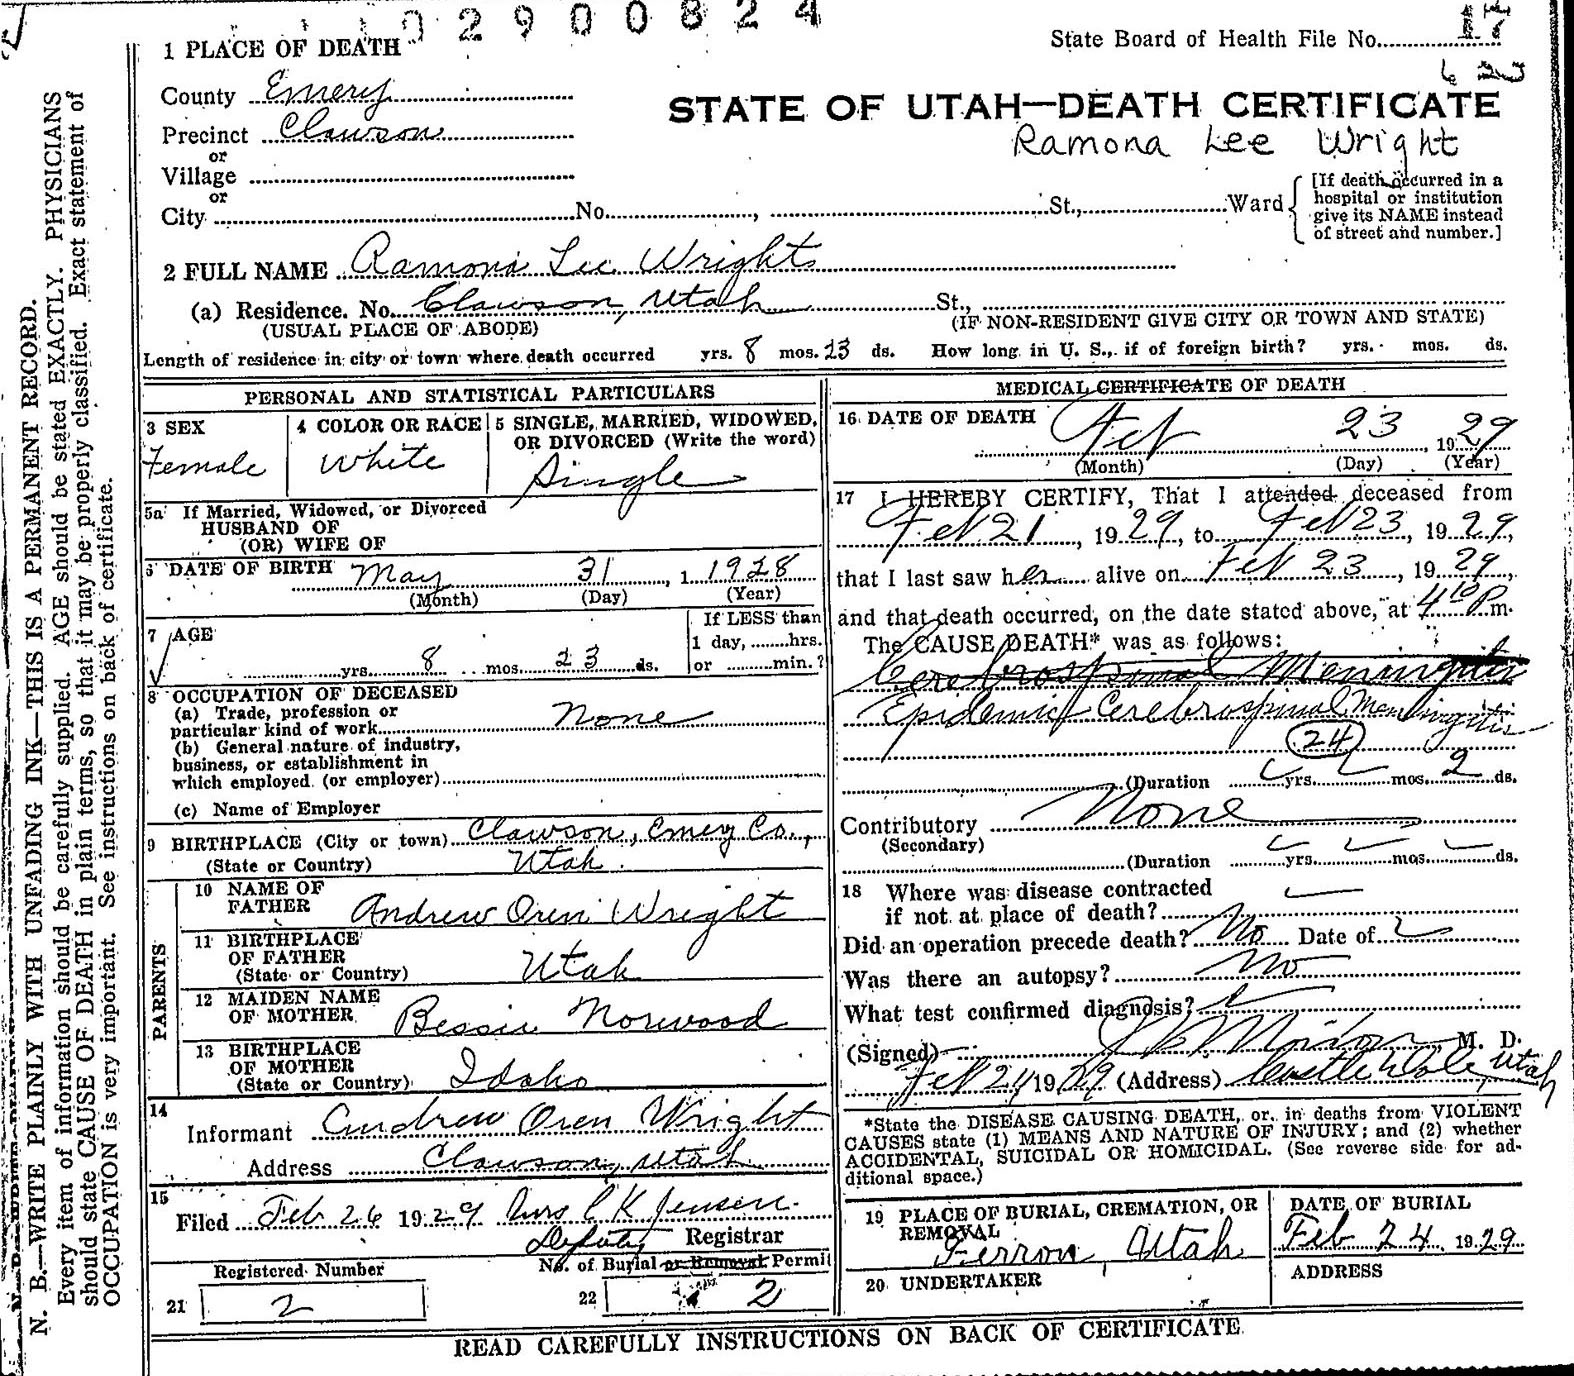 02900824
State Board of Health File No. 17
1 PLACE OF DEATH
County Emery
STATE OF UTAH—DEATH CERTIFICATE
Precinct Clawson
Ramona Lee Wright
or
Village
or
City No. , St., Ward
[If death occurred in a
hospital or institution
give its NAME instead
of street and number.]
2 FULL NAME Ramona Lee Wright
(a) Residence. No. Clawson, Utah St.,
(USUAL PLACE OF ABODE) (IF NON-RESIDENT GIVE CITY OR TOWN AND STATE)
Length of residence in city or town where death occurred yrs. 8 mos. 23 ds. How long in U. S., if of foreign birth? yrs. mos. ds.
PERSONAL AND STATISTICAL PARTICULARS
3 SEX
Female
4 COLOR OR RACE
White
5 SINGLE, MARRIED, WIDOWED,
OR DIVORCED (Write the word)
Single
5a If Married, Widowed, or Divorced
HUSBAND OF
(OR) WIFE OF
6 DATE OF BIRTH May 31, 1 1928
(Month) (Day) (Year)
7 AGE
yrs. 8 mos. 23 ds.
If LESS than
1 day, hrs.
or min.?
8 OCCUPATION OF DECEASED
(a) Trade, profession or
particular kind of work None
(b) General nature of industry,
business, or establishment in
which employed (or employer)
(c) Name of Employer
9 BIRTHPLACE (City or town) Clawson, Emery Co.,
(State or Country) Utah.
PARENTS
10 NAME OF
FATHER Andrew Oren Wright
11 BIRTHPLACE
OF FATHER
(State or Country) Utah
12 MAIDEN NAME
OF MOTHER Bessie Norwood
13 BIRTHPLACE
OF MOTHER
(State or Country) Idaho
14
Informant Andrew Oren Wright
Address Clawson, Utah
15
Filed Feb 26 1929 Mrs C K Jensen
Deputy Registrar
Registered Number
21 2
No. of Burial or Removal Permit
22 2
MEDICAL CERTIFICATE OF DEATH
16 DATE OF DEATH Feb 23, 1929
(Month) (Day) (Year)
17 I HEREBY CERTIFY, That I attended deceased from
Feb 21, 1929, to Feb 23, 1929,
that I last saw her alive on Feb 23, 1929,
and that death occurred, on the date stated above, at 4 10 P m.
The CAUSE DEATH* was as follows:
Cerebrospinal Meningitis
Epidemic Cerebrospinal Meningitis
24
(Duration yrs. mos. 2 ds.
Contributory None
(Secondary)
(Duration yrs. mos. ds.
18 Where was disease contracted
if not at place of death?
Did an operation precede death? No Date of
Was there an autopsy? No
What test confirmed diagnosis?
(Signed) M. D.
Feb 24 1929 (Address) Castle Dale, Utah
*State the DISEASE CAUSING DEATH, or, in deaths from VIOLENT
CAUSES state (1) MEANS AND NATURE OF INJURY; and (2) whether
ACCIDENTAL, SUICIDAL OR HOMICIDAL. (See reverse side for ad-
ditional space.)
19 PLACE OF BURIAL, CREMATION, OR
REMOVAL
Ferron, Utah
DATE OF BURIAL
Feb 24 1929
20 UNDERTAKER
ADDRESS
READ CAREFULLY INSTRUCTIONS ON BACK OF CERTIFICATE
N. B.—WRITE PLAINLY WITH UNFADING INK—THIS IS A PERMANENT RECORD.
Every item of information should be carefully supplied. AGE should be stated EXACTLY. PHYSICIANS
should state CAUSE OF DEATH in plain terms, so that it may be properly classified. Exact statement of
OCCUPATION is very important. See instructions on back of certificate.